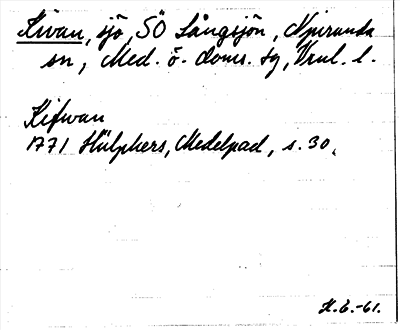 Kivan, sjö, SÖ Långsjön, Njurunda
sn, Med. ö. doms. tg, Vnl. l.
Kifwan
1771 Hülphers, Medelpad, s. 30.
H.E.-61.